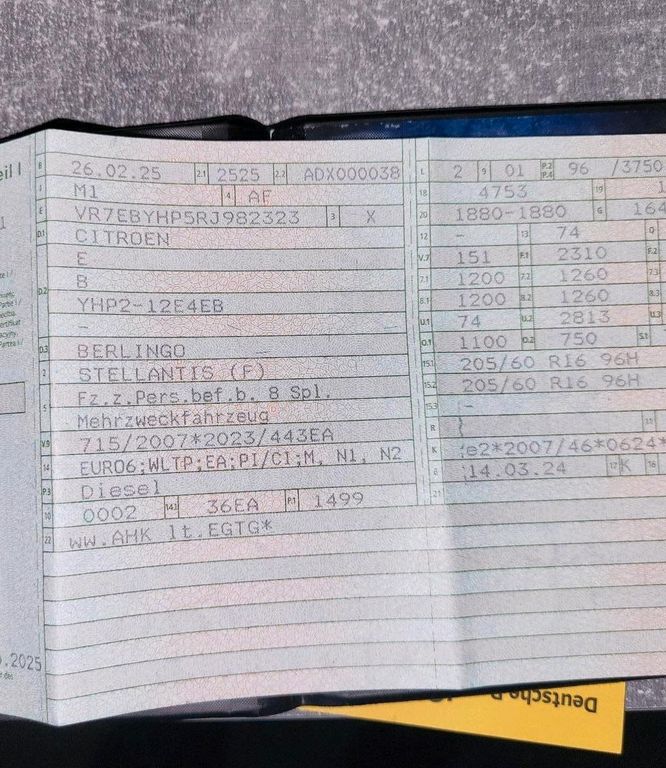 eil I
B 26.02.25 2.1 2525 2.2 ADX000038
J M1 4 AF
E VR7EBYHP5RJ982323 3 X
D.1 CITROEN
E
D.2 B
YHP2-12E4EB
-
D.3 BERLINGO
2 STELLANTIS (F)
5 Fz.z.Pers.bef.b. 8 Spl.
Mehrzweckfahrzeug
V.9 715/2007*2023/443EA
14 EURO6;WLTP;EA;PI/CI;M, N1, N2
P.3 Diesel
10 0002 14.1 36EA P.1 1499
22 ww.AHK lt.EGTG*
L 2 9 01 P.2 P.4 96 /3750
18 4753 19 1
20 1880-1880 G 164
12 - 13 74 Q
V.7 151 F.1 2310 F.2
7.1 1200 7.2 1260 7.3
8.1 1200 8.2 1260 8.3
U.1 74 U.2 2813 U.3
O.1 1100 O.2 750 S.1
15.1 205/60 R16 96H
15.2 205/60 R16 96H
15.3 -
R 11
K e2*2007/46*0624*
6 14.03.24 17 K 16
21
.2025
Deutsche